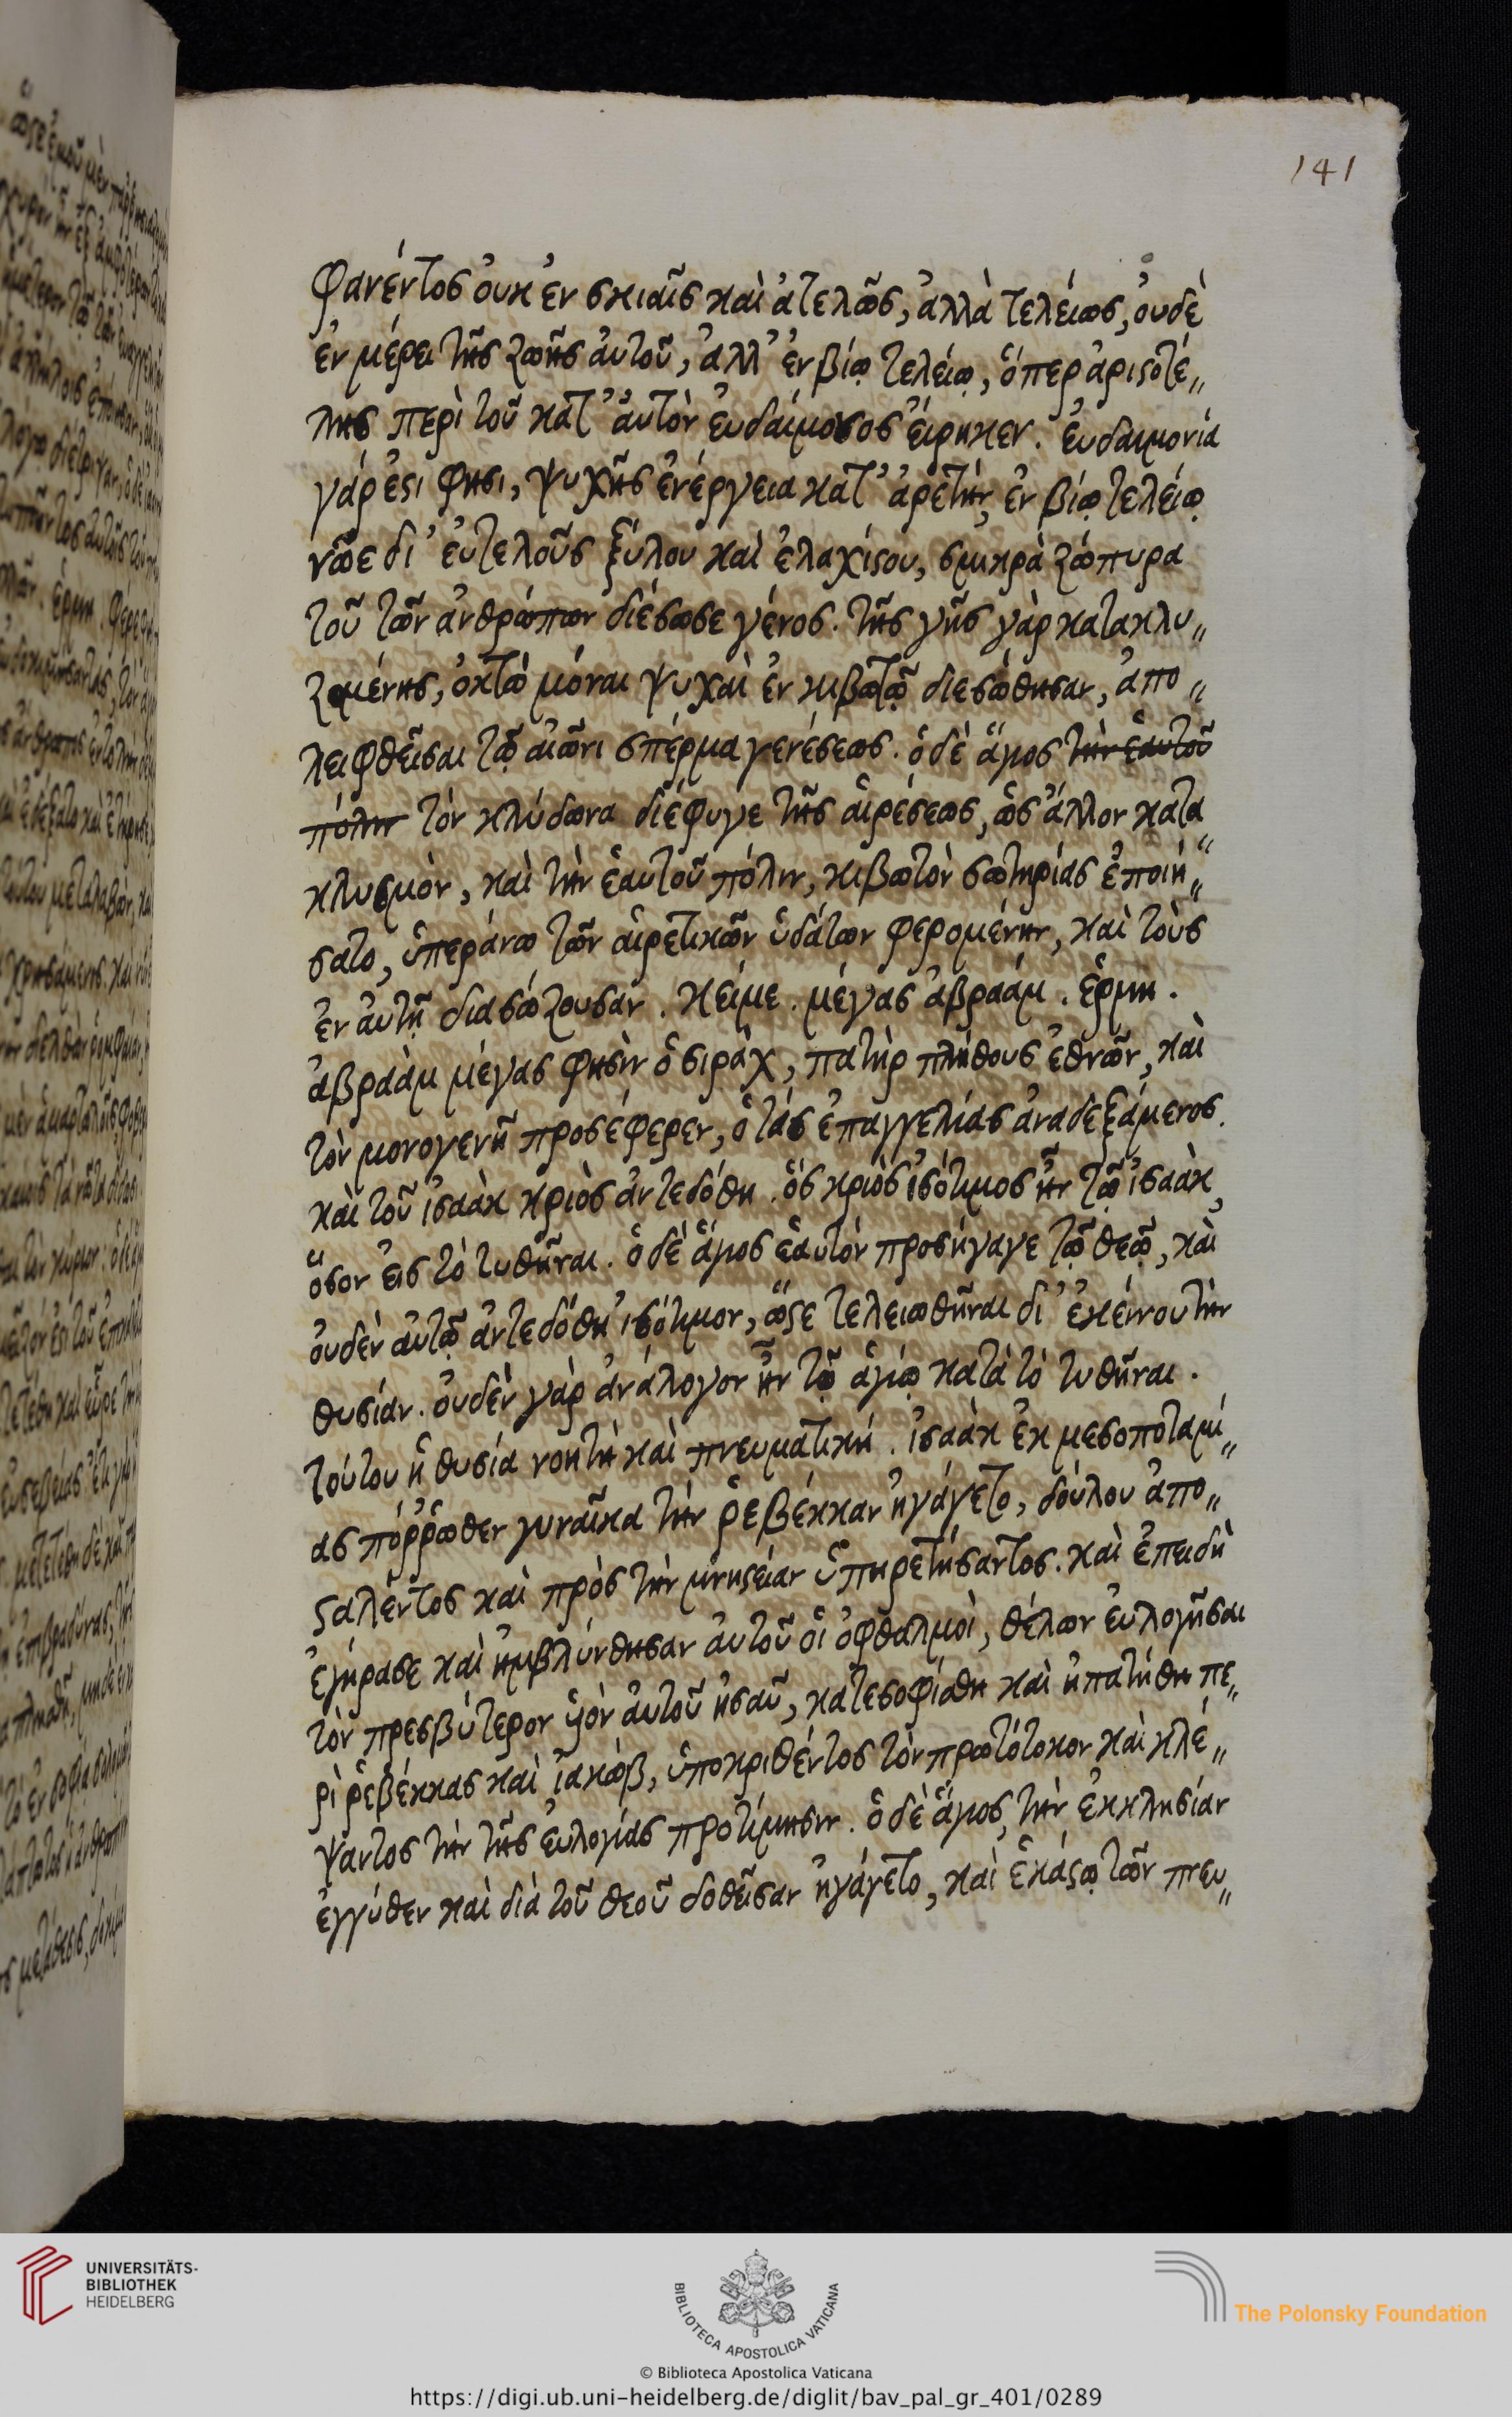 141
φανέντος οὐκ ἐν σκιαῖς καὶ ἀτελῶς, ἀλλὰ τελείως, οὐδὲ
ἐν μέρει τῆς ζωῆς αὐτοῦ, ἀλλ' ἐν βίῳ τελείῳ, ὅπερ ἀριστοτέ„
λης περὶ τοῦ κατ' αὐτὸν εὐδαίμονος εἴρηκεν. εὐδαιμονία
γάρ ἐστι φησι, ψυχῆς ἐνέργεια κατ' ἀρετὴν, ἐν βίῳ τελείῳ
νῶε δι' εὐτελοῦς ξύλου καὶ ἐλαχίστου, σμικρὰ ζώπυρα
τοῦ τῶν ἀνθρώπων διέσωσε γένος. τῆς γῆς γὰρ κατακλυ„
ζομένης, ὀκτὼ μόναι ψυχαὶ ἐν κιβωτῷ διεσώθησαν, ἀπο„
λειφθεῖσαι τῷ αἰῶνι σπέρμα γενέσεως. ὁ δὲ ἅγιος τὴν ἑαυτοῦ
πόλιν τὸν κλύδωνα διέφυγε τῆς αἱρέσεως, ὡς ἄλλον κατα„
κλυσμὸν, καὶ τὴν ἑαυτοῦ πόλιν, κιβωτὸν σωτηρίας ἐποιή„
σατο, ὑπεράνω τῶν αἱρετικῶν ὑδάτων φερομένην, καὶ τοὺς
ἐν αὐτῇ διασώζουσαν. κείμε. μέγας ἀβραάμ. ἑρμη.
ἀβραὰμ μέγας φησὶν ὁ σιρὰχ, πατὴρ πλήθους ἐθνῶν, καὶ
τὸν μονογενῆ προσέφερεν, ὁ τὰς ἐπαγγελίας ἀναδεξάμενος.
καὶ τοῦ ἰσαὰκ κριὸς ἀντεδόθη. ὃς κριὸς ἰσότιμος ἦν τῷ ἰσαὰκ,
ὅσον εἰς τὸ τυθῆναι. ὁ δὲ ἅγιος ἑαυτὸν προσήγαγε τῷ θεῷ, καὶ
οὐδὲν αὐτῷ ἀντεδόθη ἰσότιμον, ὥστε τελειωθῆναι δι' ἐκείνου τὴν
θυσίαν. οὐδὲν γὰρ ἀνάλογον ἦν τῷ ἁγίῳ κατὰ τὸ τυθῆναι.
τούτου ἡ θυσία νοητὴ καὶ πνευματική. ἰσαὰκ ἐκ μεσοποταμί„
ας πόῤῥωθεν γυναῖκα τὴν ῥεβέκκαν ἠγάγετο, δούλου ἀπο„
σταλέντος καὶ πρὸς τὴν μνηστείαν ὑπηρετήσαντος. καὶ ἐπειδὴ
ἐγήρασε καὶ ἠμβλύνθησαν αὐτοῦ οἱ ὀφθαλμοὶ, θέλων εὐλογῆσαι
τὸν πρεσβύτερον ὑὸν αὐτοῦ ἠσαῦ, κατεσοφίσθη καὶ ἠπατήθη πε„
ρὶ ῥεβέκκας καὶ ἰακὼβ, ὑποκριθέντος τὸν πρωτότοκον καὶ κλέ„
ψαντος τὴν τῆς εὐλογίας προτίμησιν. ὁ δὲ ἅγιος, τὴν ἐκκλησίαν
ἐγγύθεν καὶ διὰ τοῦ θεοῦ δοθεῖσαν ἠγάγετο, καὶ ἑκάστῳ τῶν πνευ„
UNIVERSITÄTS-
BIBLIOTHEK
HEIDELBERG
BIBLIOTECA APOSTOLICA VATICANA
The Polonsky Foundation
© Biblioteca Apostolica Vaticana
https://digi.ub.uni-heidelberg.de/diglit/bav_pal_gr_401/0289